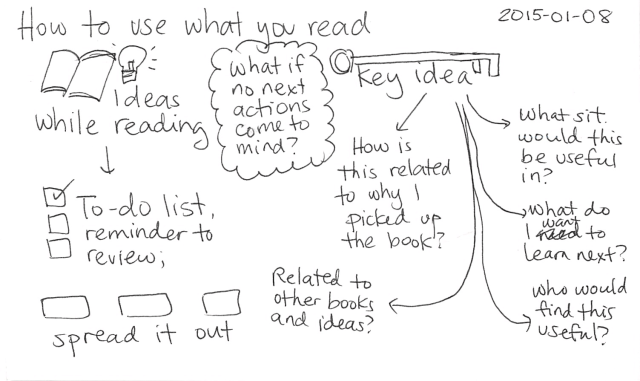 How to use what you read
2015-01-08
Ideas
while reading
To-do list,
reminder to
review;
spread it out
What if
no next
actions
come to
mind?
Key idea
How is
this related
to why I
picked up
the book?
Related to
other books
and ideas?
What sit.
would this
be useful
in?
What do
I want to
learn next?
Who would
find this
useful?